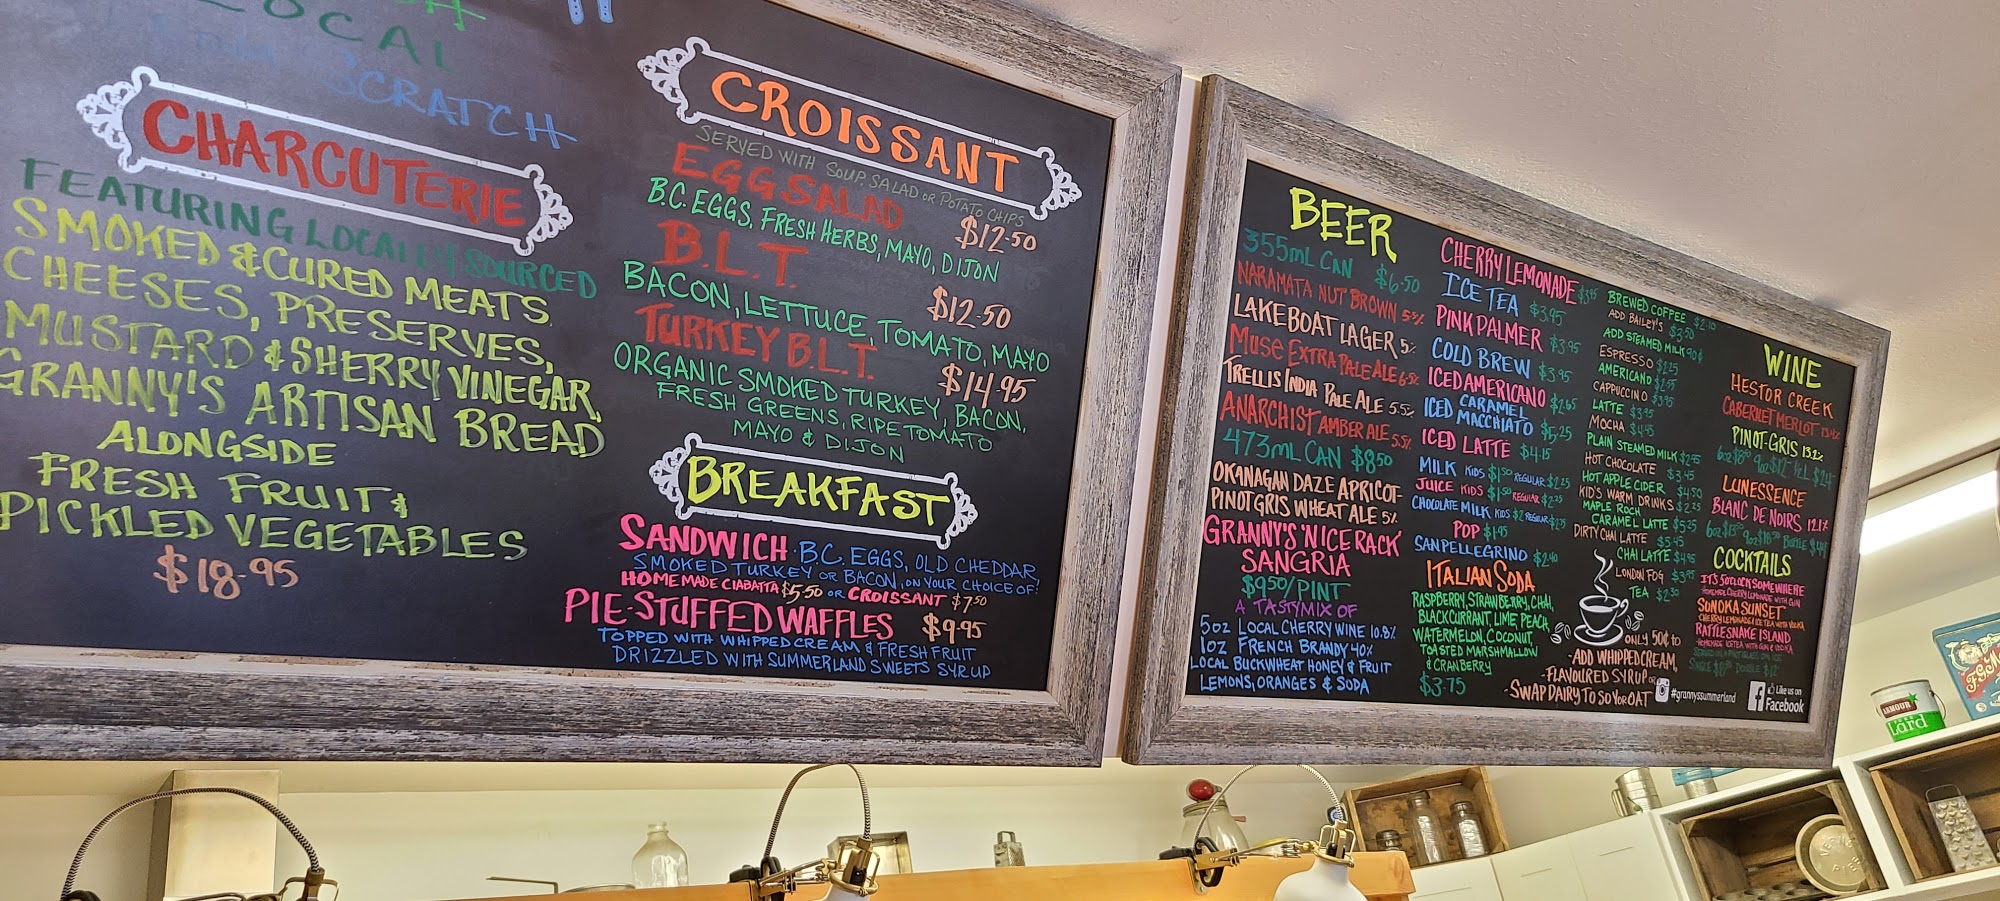 LOCAL
SCRATCH
CHARCUTERIE
FEATURING LOCALLY SOURCED
SMOKED & CURED MEATS
CHEESES, PRESERVES,
MUSTARD & SHERRY VINEGAR,
GRANNY'S ARTISAN BREAD
ALONGSIDE
FRESH FRUIT &
PICKLED VEGETABLES
$18.95
CROISSANT
SERVED WITH SOUP, SALAD OR POTATO CHIPS
EGG SALAD $12.50
B.C. EGGS, FRESH HERBS, MAYO, DIJON
B.L.T. $12.50
BACON, LETTUCE, TOMATO, MAYO
TURKEY B.L.T. $14.95
ORGANIC SMOKED TURKEY, BACON,
FRESH GREENS, RIPE TOMATO
MAYO & DIJON
BREAKFAST
SANDWICH · B.C. EGGS, OLD CHEDDAR,
SMOKED TURKEY OR BACON, ON YOUR CHOICE OF:
HOMEMADE CIABATTA $5.50 OR CROISSANT $7.50
PIE-STUFFED WAFFLES $9.95
TOPPED WITH WHIPPED CREAM & FRESH FRUIT
DRIZZLED WITH SUMMERLAND SWEETS SYRUP
BEER
355mL CAN $6.50
NARAMATA NUT BROWN 5.5%
LAKEBOAT LAGER 5%
MUSE EXTRA PALE ALE 6.5%
TRELLIS INDIA PALE ALE 5.5%
ANARCHIST AMBER ALE 5.5%
473mL CAN $8.50
OKANAGAN DAZE APRICOT
PINOT GRIS WHEAT ALE 5%
GRANNY'S 'NICE RACK'
SANGRIA
$9.50/PINT
A TASTY MIX OF
5oz LOCAL CHERRY WINE 10.8%
1oz FRENCH BRANDY 40%
LOCAL BUCKWHEAT HONEY & FRUIT
LEMONS, ORANGES & SODA
CHERRY LEMONADE $3.95
ICE TEA $3.95
PINK PALMER $3.95
COLD BREW $3.95
ICED AMERICANO $2.65
ICED CARAMEL
MACCHIATO $5.25
ICED LATTE $4.15
MILK KIDS $1.50 REGULAR $2.25
JUICE KIDS $1.50 REGULAR $2.25
CHOCOLATE MILK KIDS $2 REGULAR
POP $1.95
SANPELLEGRINO $2.40
ITALIAN SODA
RASPBERRY, STRAWBERRY, CHAI,
BLACKCURRANT, LIME, PEACH,
WATERMELON, COCONUT,
TOASTED MARSHMALLOW
& CRANBERRY
$3.75
BREWED COFFEE $2.10
ADD BAILEY'S $3.50
ADD STEAMED MILK 90¢
ESPRESSO $2.25
AMERICANO $2.55
CAPPUCCINO $3.95
LATTE $3.95
MOCHA $4.45
PLAIN STEAMED MILK $2.95
HOT CHOCOLATE $3.45
HOT APPLE CIDER $4.50
KID'S WARM DRINKS $2.25
MAPLE ROCH
CARAMEL LATTE $5.25
DIRTY CHAI LATTE $5.45
CHAI LATTE $4.95
LONDON FOG $3.95
TEA $2.30
ONLY 50¢ TO
-ADD WHIPPED CREAM,
-FLAVOURED SYRUP OR
-SWAP DAIRY TO SOY OR OAT
WINE
HESTOR CREEK
CABERNET MERLOT
PINOT-GRIS 13.2%
LUNESSENCE
BLANC DE NOIRS 12.1%
COCKTAILS
IT'S 5 O'CLOCK SOMEWHERE
HOMEMADE CHERRY LEMONADE WITH GIN
SUNOKA SUNSET
CHERRY LEMONADE & ICE TEA WITH VODKA
RATTLESNAKE ISLAND
HOMEMADE ICE TEA WITH GIN & VODKA
#grannyssummerland
Like us on
Facebook
ARMOUR
Lard